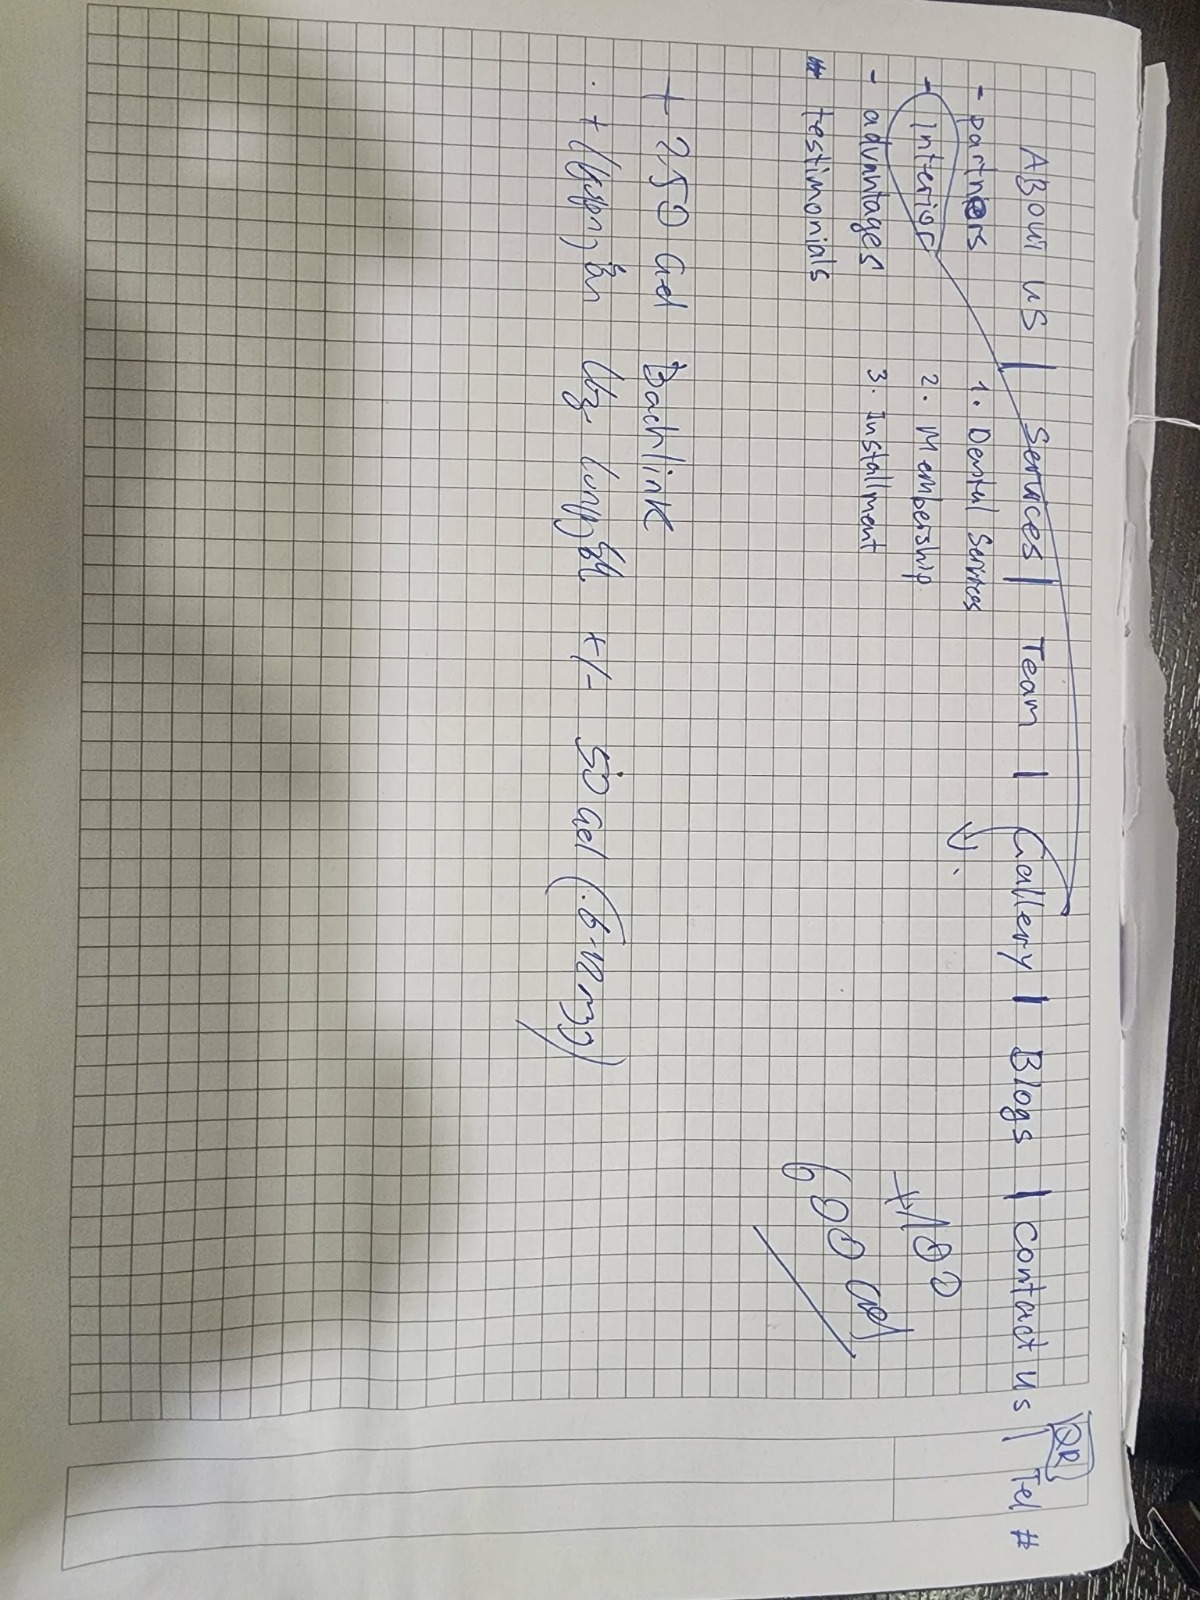 QR
ABOUT US | Services | Team | Gallery | Blogs | Contact us | Tel #
- partners
1. Dental Services
- interior
2. Membership
- advantages
3. Installment
# testimonials
+100
600 Gel
+ 250 Gel Backlink
+/- 50 Gel